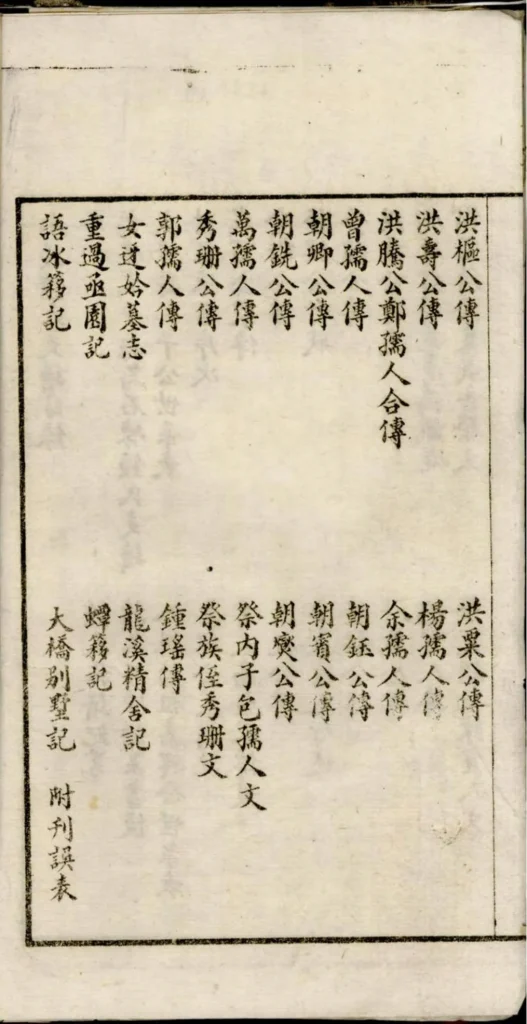 洪樞公傳 洪粟公傳
洪壽公傳 楊孺人傳
洪騰公鄭孺人合傳 余孺人傳
曾孺人傳 朝鈺公傳
朝卿公傳 朝賓公傳
朝銑公傳 朝爕公傳
萬孺人傳 祭內子包孺人文
秀珊公傳 祭族侄秀珊文
郭孺人傳 鍾瑤傳
女迓姶墓志 龍溪精舍記
重過亟園記 蟫簃記
語冰簃記 大橋別墅記 附刊誤表